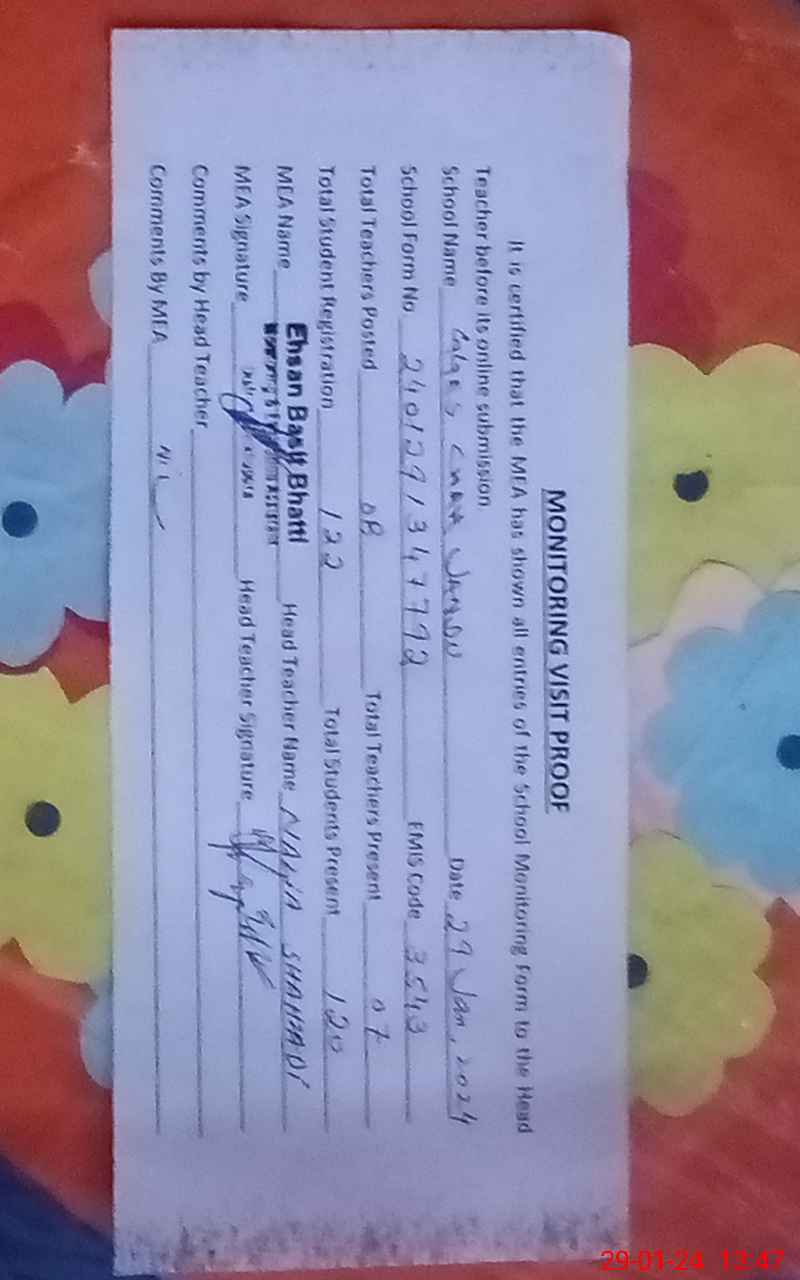 MONITORING VISIT PROOF
It is certified that the MEA has shown all entries of the School Monitoring Form to the Head
Teacher before its online submission
School Name Date 29 Jan, 2024
School Form No. 2401291347792 EMIS Code 3543
Total Teachers Posted 08 Total Teachers Present 07
Total Student Registration 122 Total Students Present 120
MEA Name Ehsan Basit Bhatti Head Teacher Name NAZIA SHAHZADI
MEA Signature Head Teacher Signature
Comments by Head Teacher
Comments By MEA Nil
29-01-24 13:47